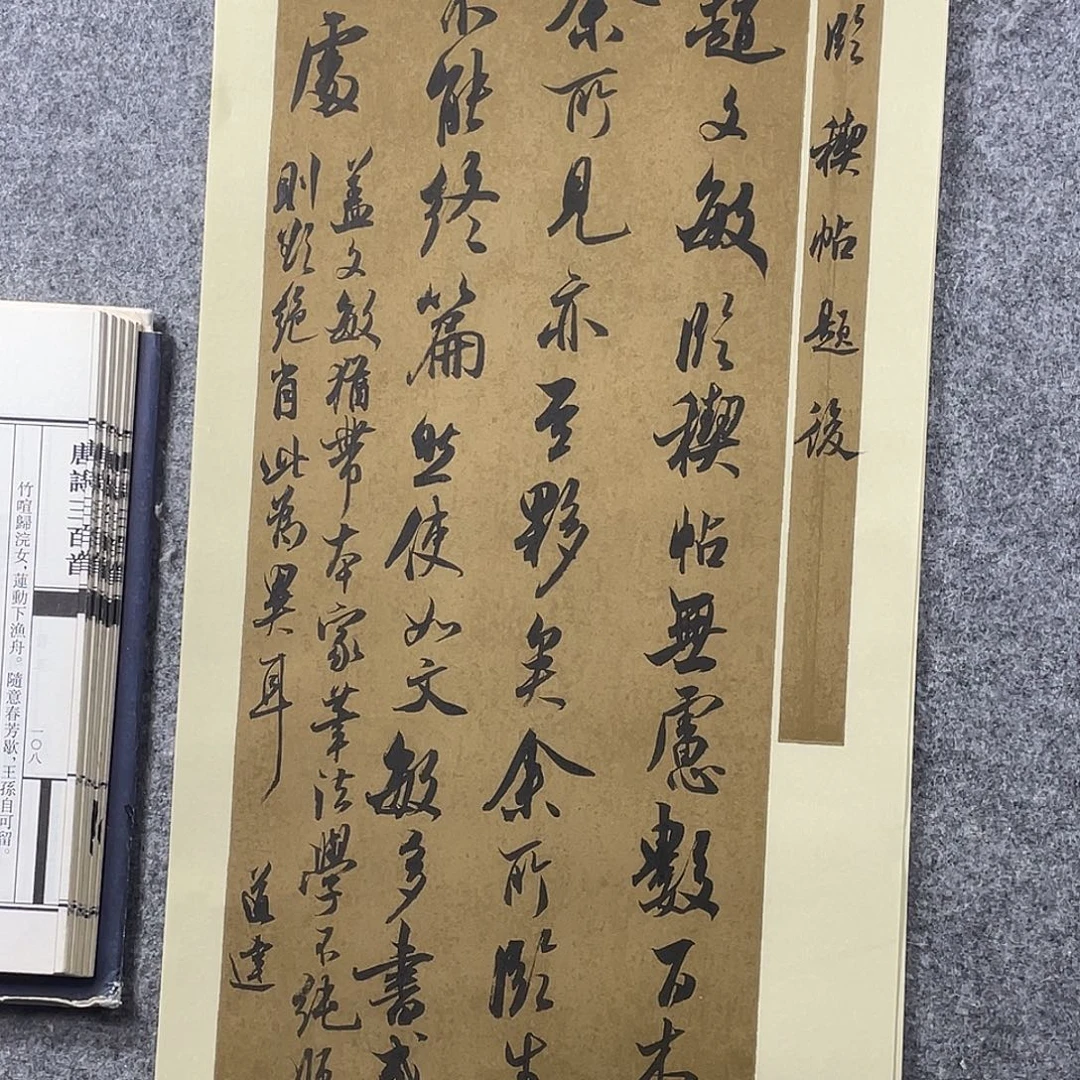 臨禊帖題後
趙文敏臨禊帖無慮數百本
余所見亦至夥矣余所臨生
不能終篇然使如文敏多書或
處蓋文敏猶帶本家筆法學不純師
則娣絕肖此為異耳
道達
唐詩三百首
一〇八
竹喧歸浣女,蓮動下漁舟。隨意春芳歇,王孫自可留。